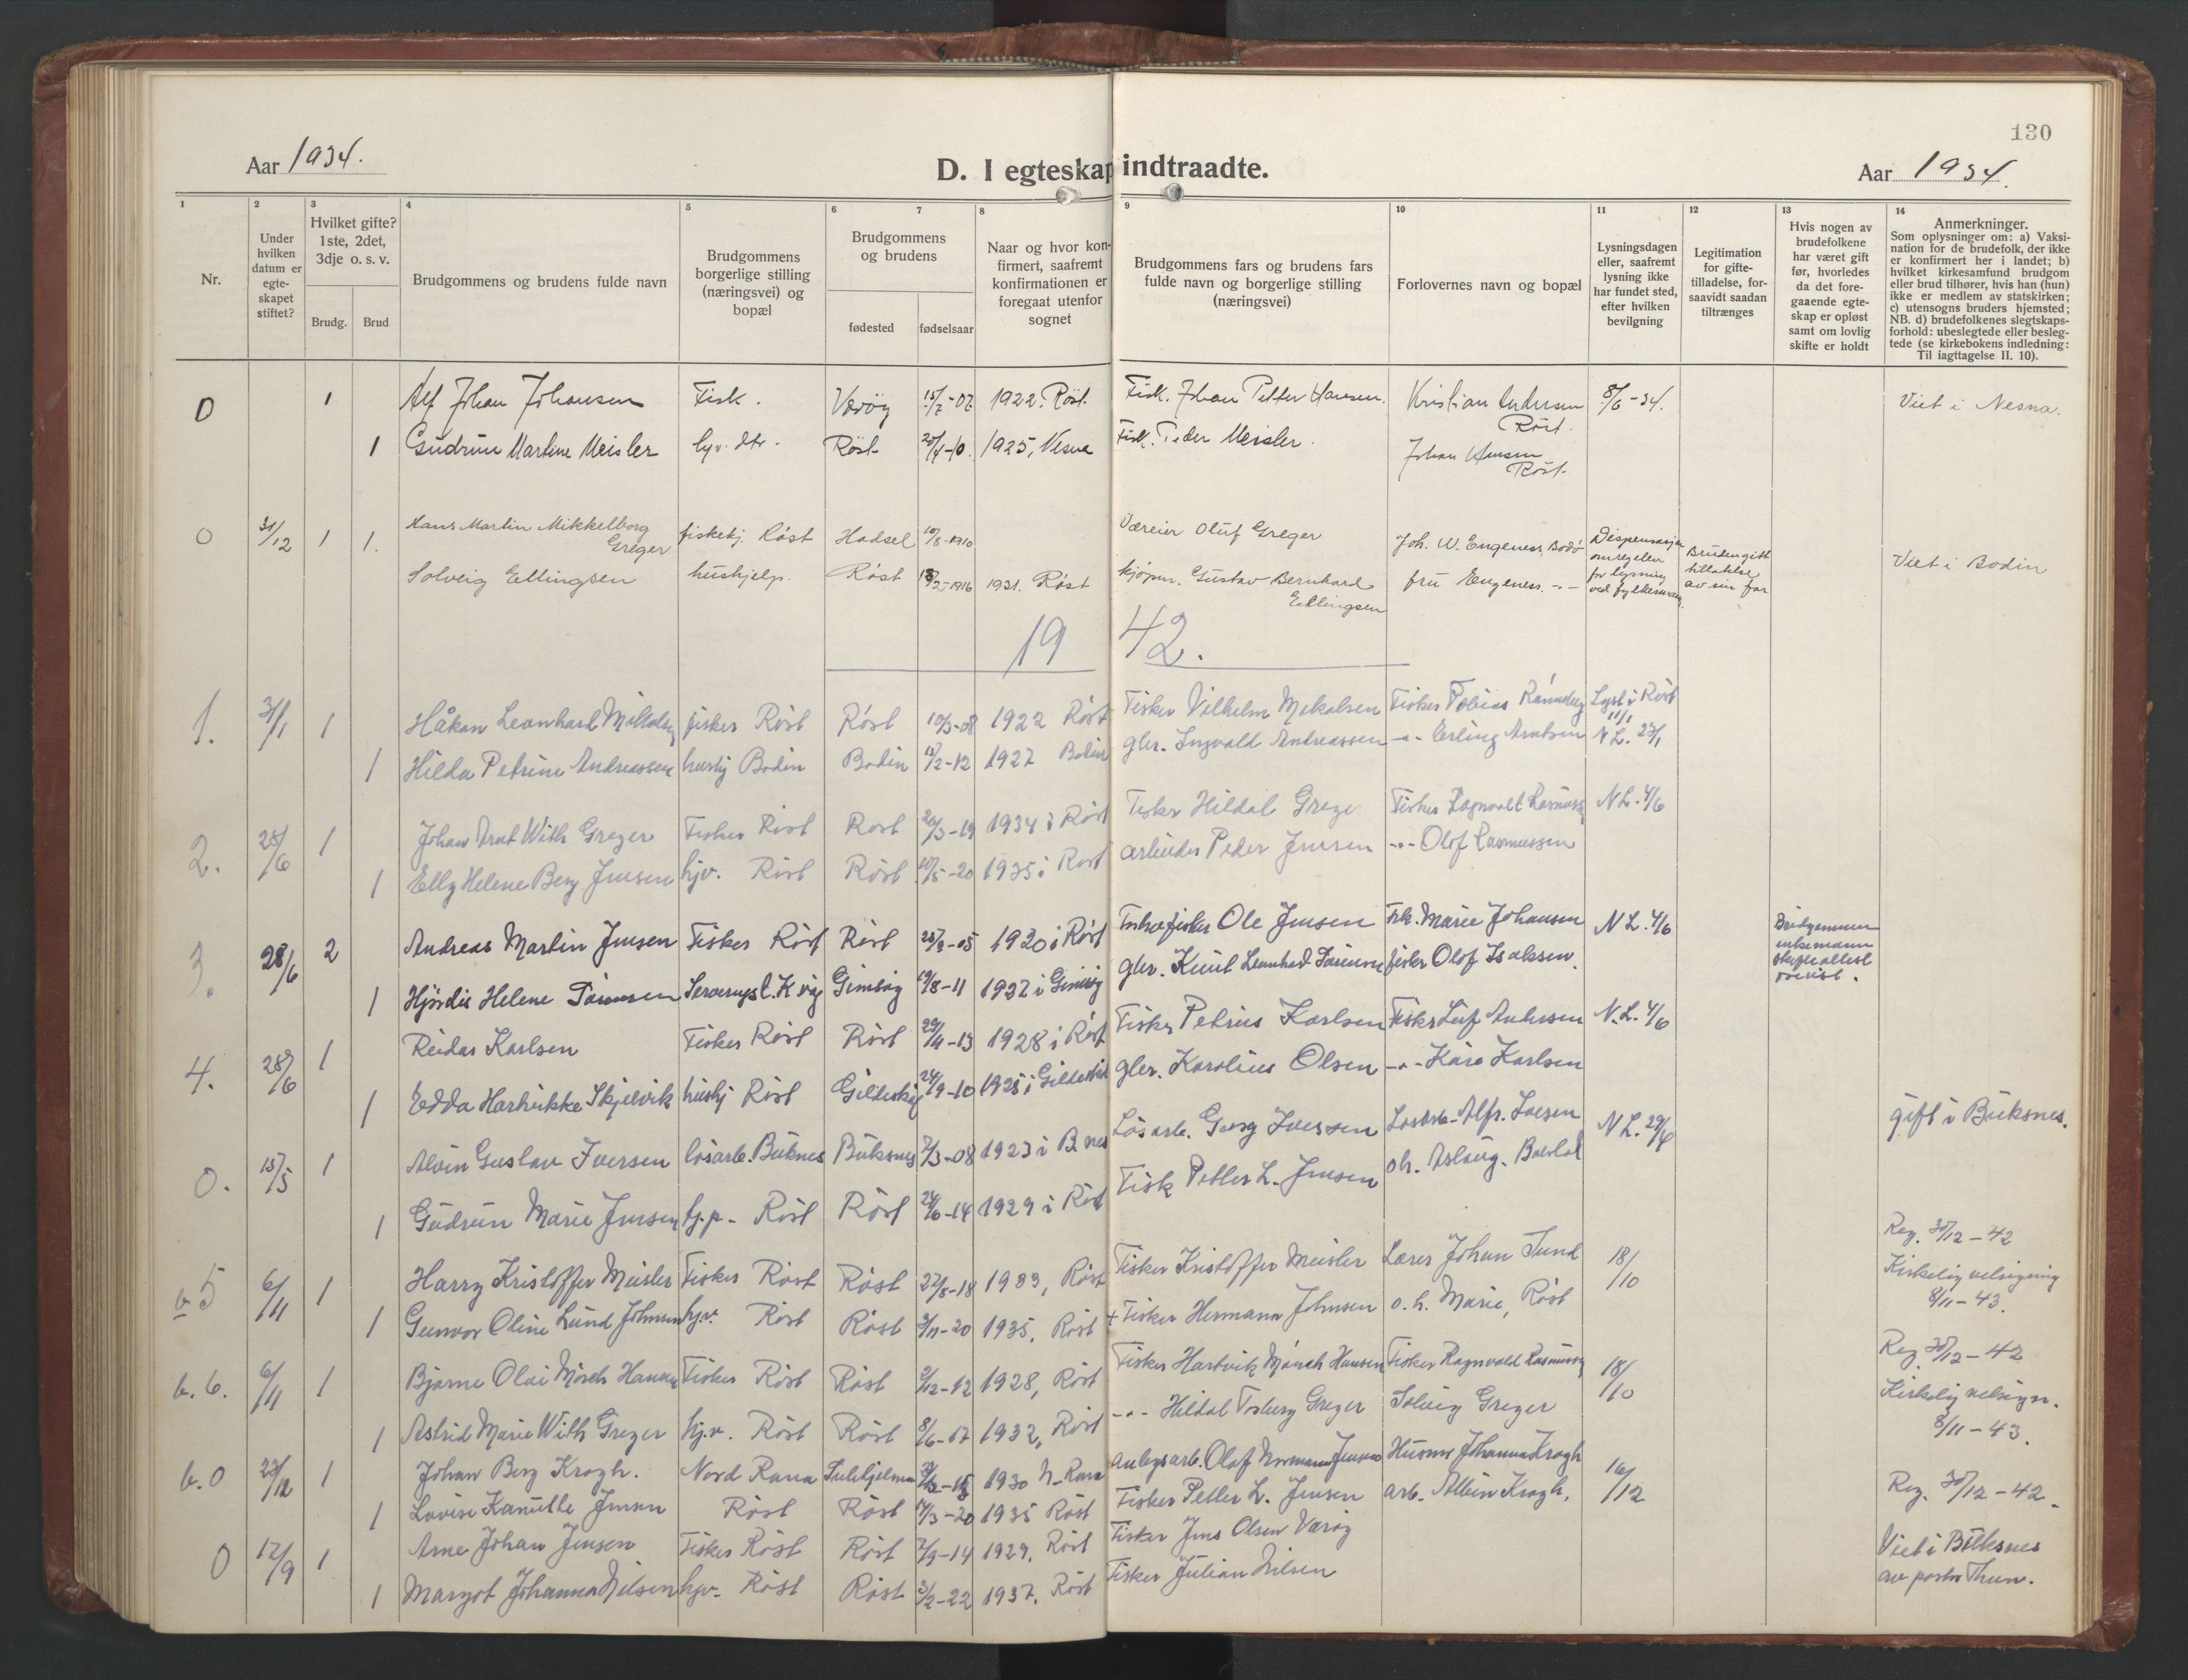 130
Aar 1934.
D. I egteskap indtraadte.
Aar 1934.
1 2 3 4 5 6 7 8 9 10 11 12 13 14
Nr.
Under hvilken datum er egte-skapet stiftet?
Hvilket gifte? 1ste, 2det, 3dje o. s. v.
Brudg. Brud
Brudgommens og brudens fulde navn
Brudgommens borgerlige stilling (næringsvei) og bopæl
Brudgommens og brudens
fødested fødselsaar
Naar og hvor kon-firmert, saafremt konfirmationen er foregaat utenfor sognet
Brudgommens fars og brudens fars fulde navn og borgerlige stilling (næringsvei)
Forlovernes navn og bopæl
Lysningsdagen eller, saafremt lysning ikke har fundet sted, efter hvilken bevilgning
Legitimation for gifte-tilladelse, for-saavidt saadan tiltrænges
Hvis nogen av brudefolkene har været gift før, hvorledes da det fore-gaaende egte-skap er opløst samt om lovlig skifte er holdt
Anmerkninger.
Som oplysninger om: a) Vaksi-nation for de brudefolk, der ikke er konfirmert her i landet; b) hvilket kirkesamfund brudgom eller brud tilhører, hvis han (hun) ikke er medlem av statskirken; c) utensogns bruders hjemsted; NB. d) brudefolkenes slegtskaps-forhold: ubeslegtede eller besleg-tede (se kirkebokens indledning: Til iagttagelse II. 10).
0 1 Alf Johan Johansen Fisk. Værøy 15/7-07 1922. Röst. Fisk. Johan Petter Hansen. Kristian Andersen Röst. 8/6-34. Viet i Nesna.
1 Gudrun Martine Meisler hjv. dtr. Röst 20/4-10. 1925, Nesna Fisk. Peder Meisler. Johan Hansen Röst.
0 31/12 1 1. Hans Martin Mikkelborg Greger fiskekj. Røst Hadsel 10/8-1910 Væreier Oluf Greger Joh. W. Engeness, Bodø Dispensasjon om regelen for lysning ved fylkesmann. Bruden gitt tillatelse av sin far Viet i Bodin
Solveig Ellingsen hushjelp. Røst 18/2-1916 1931. Røst kjøpm. Gustav Bernhard Ellingsen fru Engeness. -"-
19 42.
1. 31/1 1 Håkon Leonhard Mikalsen fisker Röst Röst 10/3-08 1922 Röst Fisker Vilhelm Mikalsen Fisker Tobias Lyst i Röst 11/1
1 Hilda Petrine Andreassen hushj Bodin Bodin 12-12 1927 Bodin gbr. Ingvald Andreassen -"- Erling Arntsen N L. 23/1
2. 28/6 1 Johan Arnt With Greger Fisker Röst Röst 20/3-19 1934 i Röst Fisker Hildal Greger Fisker Ragnvald Rasmuss N L. 4/6
1 Elly Helene Berg Jensen hjv. Röst Röst 10/5-20 1935 i Röst arbeider Peder Jensen -"- Olof Rasmussen
3. 28/6 2 Andreas Martin Jensen Fisker Röst Röst 1920 i Röst Ole Jensen Frk. Marie Johansen N L. 4/6 Brudgommen enkemann skifteattest forevist.
1 Hjørdis Helene Gimsøy 19/8-11 1927 i Gimsøy gbr. Knut Leonhard fisker Olof Isaksen.
4. 28/6 1 Reidar Karlsen Fisker Röst Röst 29/11-13 1928 i Röst Fisker Petrus Karlsen Fisker Leif Andersen N. L. 4/6
1 Edda Harhikke Skjelvik hushj Röst Gildeskj 24/9-10 1925 i Gildeskål gbr. Karolius Olsen -"- Kåre Karlsen
0. 15/5 1 Alvin Gustav Iversen løsarb. Buknes Buksnes 7/3-08 1923 i B.nes Løsarb. Georg Iversen Løsarb. Alfr. Iversen N L. 29/4 gift i Buksnes.
1 Gudrun Marie Jensen tj.p. Röst Röst 24/6-14 1929 i Röst Fisk Petter L. Jensen o h. Aslaug.
b 5 6/11 1 Harry Kristoffer Meisler Fisker Röst Röst 27/8-18 1933, Röst Fisker Kristoffer Meisler Lærer Johan Sund 18/10 Reg. 30/12-42
1 Gunvor Oline Lund Johnsen hjv. Röst Röst 3/11-20 1935, Röst + Fisker Hermann Johnsen o. h. Marie, Röst Kirkelig velsigning 8/11-43.
b. 6. 6/11 1 Bjarne Olai Mörch Hansen Fisker Röst Röst 2/12-12 1928, Röst Fisker Hartvik Mörch Hansen Fisker Ragnvald Rasmussen 18/10 Reg. 30/12-42
1 Astrid Marie With Greger hj.v. Röst Röst 8/6-17 1932, Röst -"- Hildal Torberg Greger Solveig Greger Kirkelig velsign. 8/11-43.
b. 0 23/12 1 Johan Berg Krogh. Nord Rana Sulitjelma 1930 N-Rana anlegsarb. Olaf Normann Jensen Husmor Johanna Krogh 16/12
1 Lovise Kamille Jensen Röst Röst 17/3-20 1935 Röst Fisker Petter L. Jensen arb. Albin Krogh. Reg. 30/12-42.
0 12/9 1 Arne Johan Jensen Fisker Röst Röst 7/9-14 1929. Röst Fisker Jens Olsen Værøy Viet i Buksnes
1 Margot Johanna Nilsen hjv. Röst Röst 3/2-22 1937. Röst Fisker Julian Nilsen av pastor Thun.